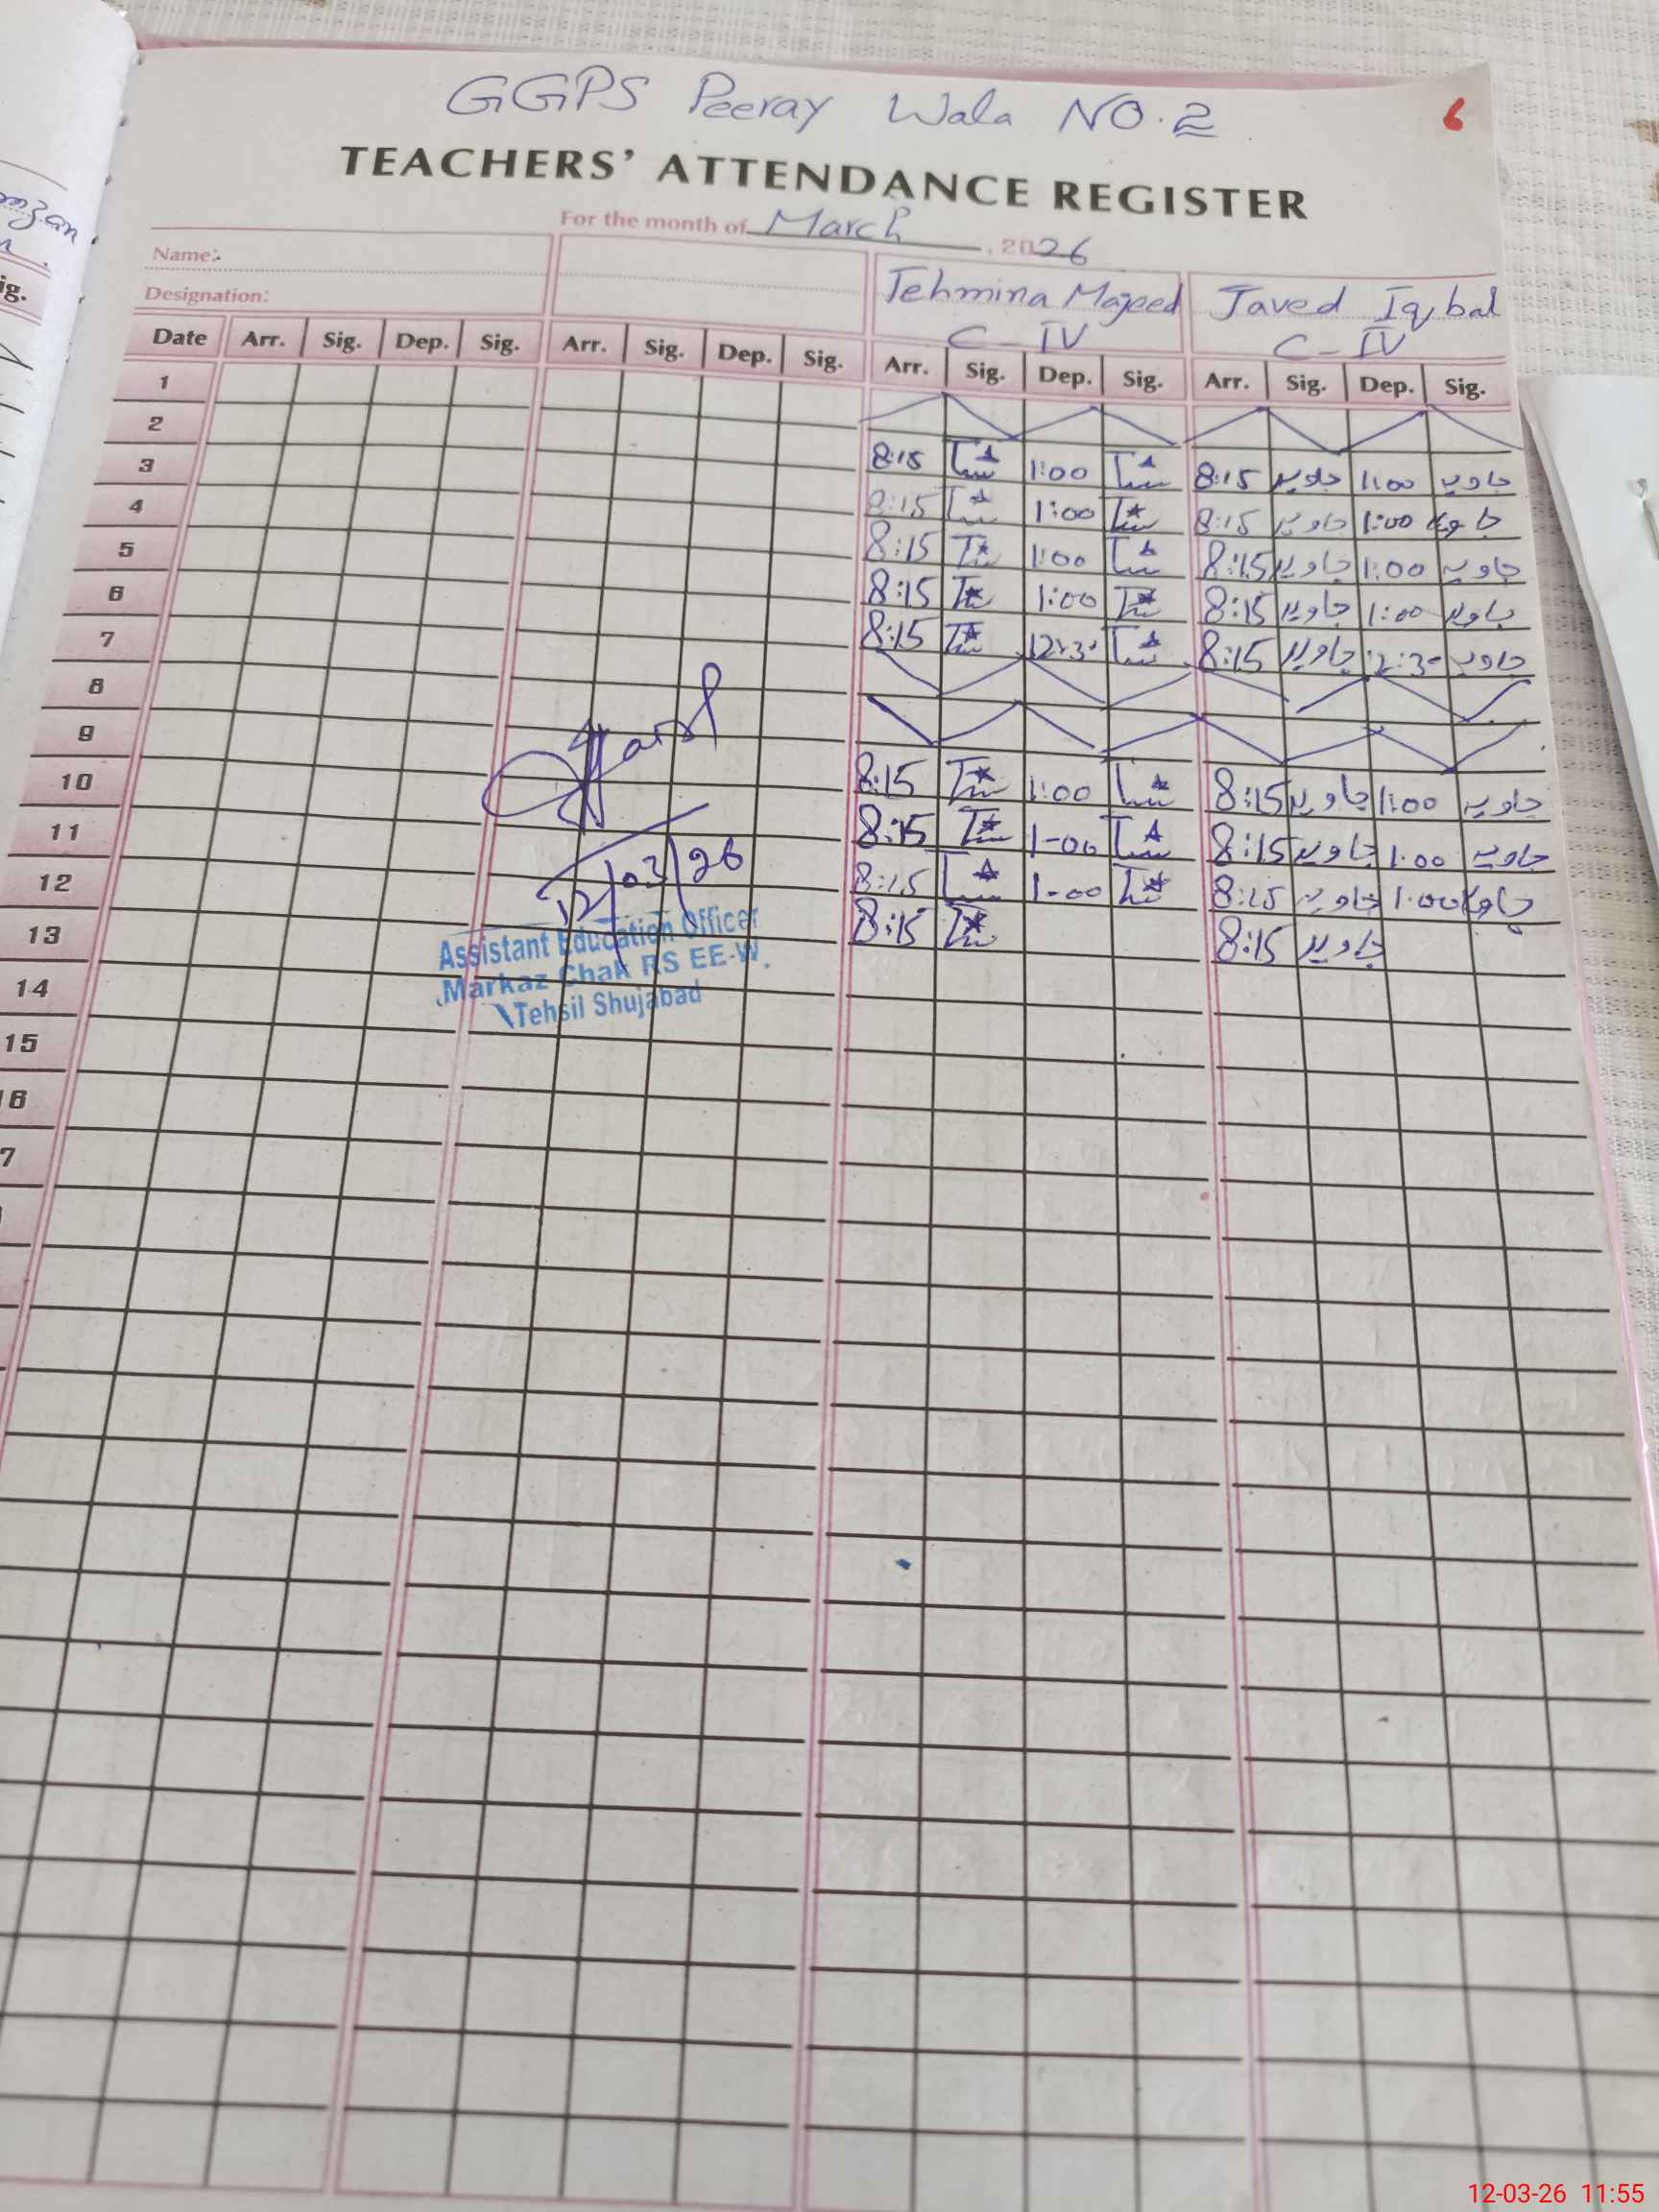 GGPS Peeray Wala NO.2
6
TEACHERS' ATTENDANCE REGISTER
For the month of March, 2026
Name:
Tehmina Majeed Javed Iqbal
Designation:
C-IV C-IV
Date Arr. Sig. Dep. Sig. Arr. Sig. Dep. Sig. Arr. Sig. Dep. Sig. Arr. Sig. Dep. Sig.
1
2 8:15 1:00 8:15 جاوید 1:00 جاوید
3 8:15 1:00 8:15 جاوید 1:00 جاوید
4 8:15 1:00 8:15 جاوید 1:00 جاوید
5 8:15 1:00 8:15 جاوید 1:00 جاوید
6 8:15 12:30 8:15 جاوید 12:30 جاوید
7
8
9 8:15 1:00 8:15 جاوید 1:00 جاوید
10 8:15 1-00 8:15 جاوید 1:00 جاوید
11 8:15 1-00 8:15 جاوید 1:00 جاوید
12 8:15 8:15 جاوید
13
14
15
16
17
12/03/26
Assistant Education Officer
Markaz Chak RS EE-W.
Tehsil Shujabad
12-03-26 11:55